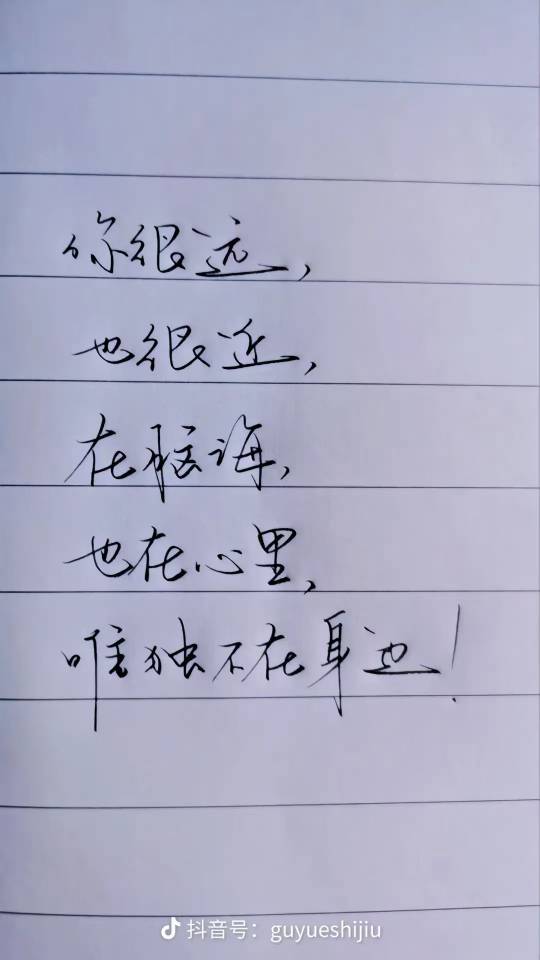 你很远，
也很近，
在脑海，
也在心里，
唯独不在身边！
抖音号：guyueshijiu